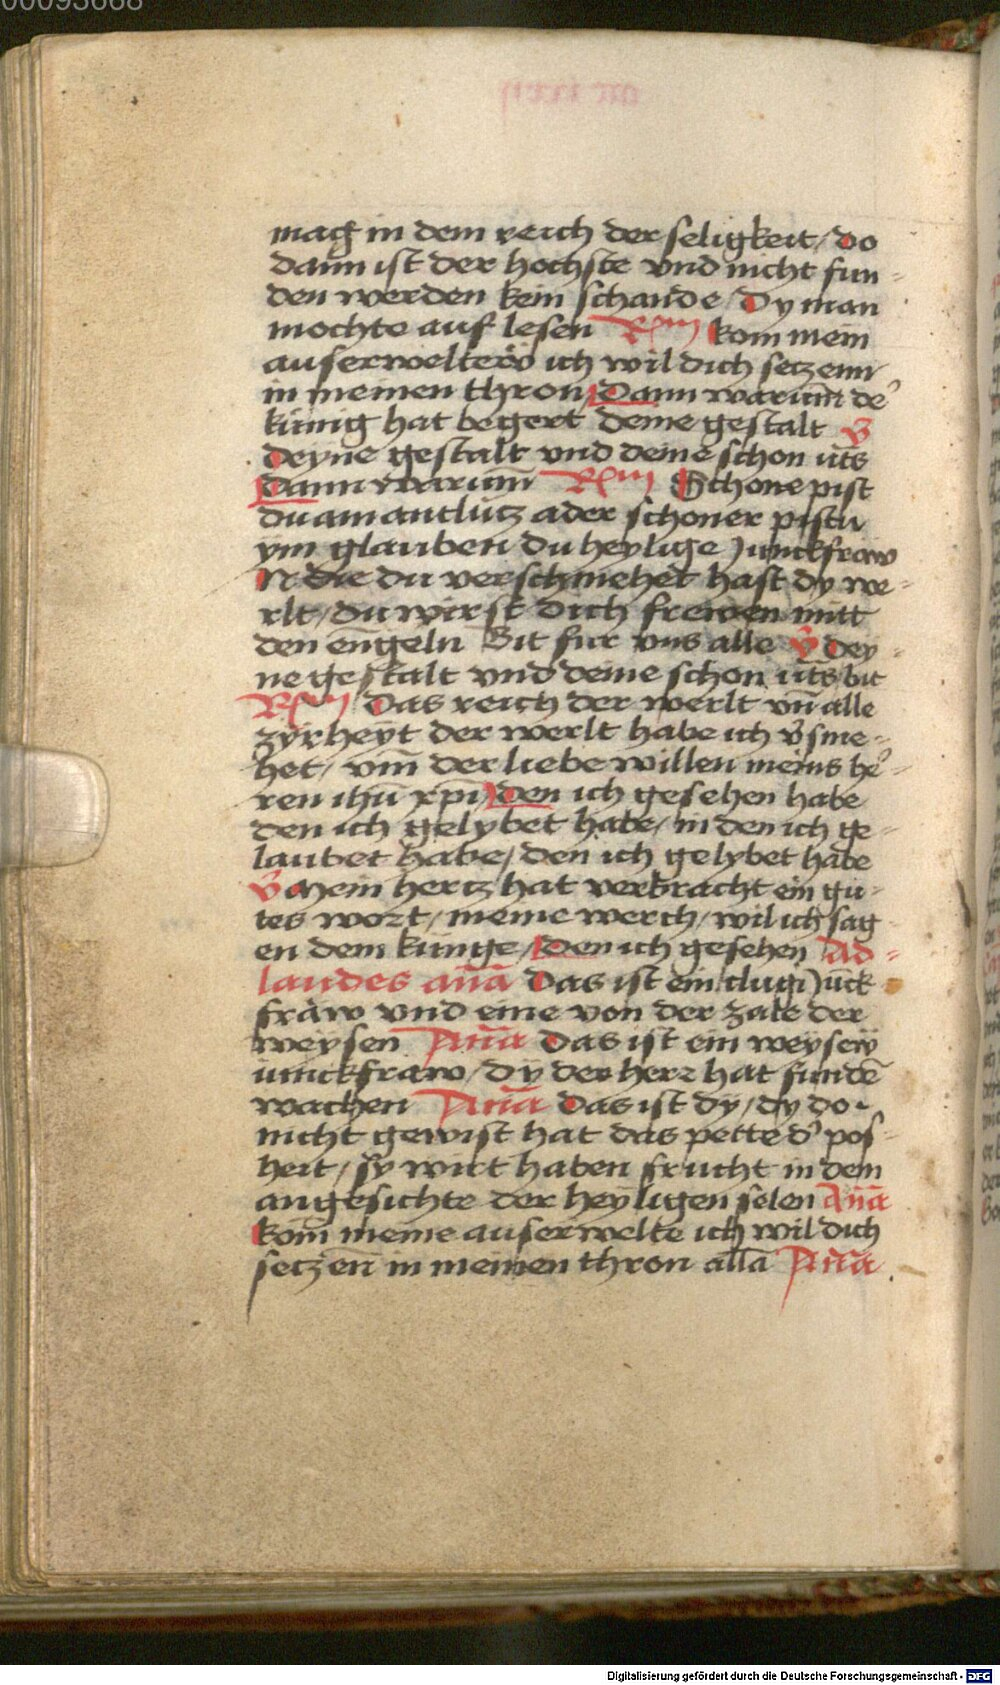 00093668
mag in dem reich der seligkeit / do
dann ist der hochste vnd nicht fun-
den werden kein schande / Dy man
mochte auf lesen Rsm kom mein
auserwelte wo ich wil dich setzenn
in meinen thron / Dann warum̄ de'
künig hat begert deine gestalt V
deyne gestalt vnd deine schon ūts
Dann warum̄ Rsm Schone pist
du am antlütz ader schoner pistu
ym glauben du heylige Junckfraw
N die du verschmehet hast dy we-
rlt / du wirst dich frewen mitt
den engeln Bit fur vns alle V dey-
ne gestalt vnd deine schon ūts bit
Rsm Das reich der werlt vn̄ alle
zÿrheÿt der werlt habe ich v'sme-
het / vm̄ der liebe willen meins he'-
ren ihū xp̄i / den ich gesehen habe
den ich gelybet habe / in den ich ge-
laubet habe / den ich gelybet habe
V Mein hertz hat verbracht ein gu-
tes wort / meine werch / wil ich sag
en dem künige / Den ich gesehen Ad-
laudes an̄a Das ist ein clugi Jūck
fraw vnd eine von der zale der
weysen An̄a Das ist ein weysew
iunckfraw / dÿ der herr hat fundē
wachen An̄a Das ist dy / dy do
nicht gewist hat das pette d' pos-
heit / sy wirt haben frucht in dem
angesichte der heyligen selen An̄a
kom̄ meine auserwelte ich wil dich
setzen̄ in meinen thron all̄a An̄a
Digitalisierung gefördert durch die Deutsche Forschungsgemeinschaft - DFG